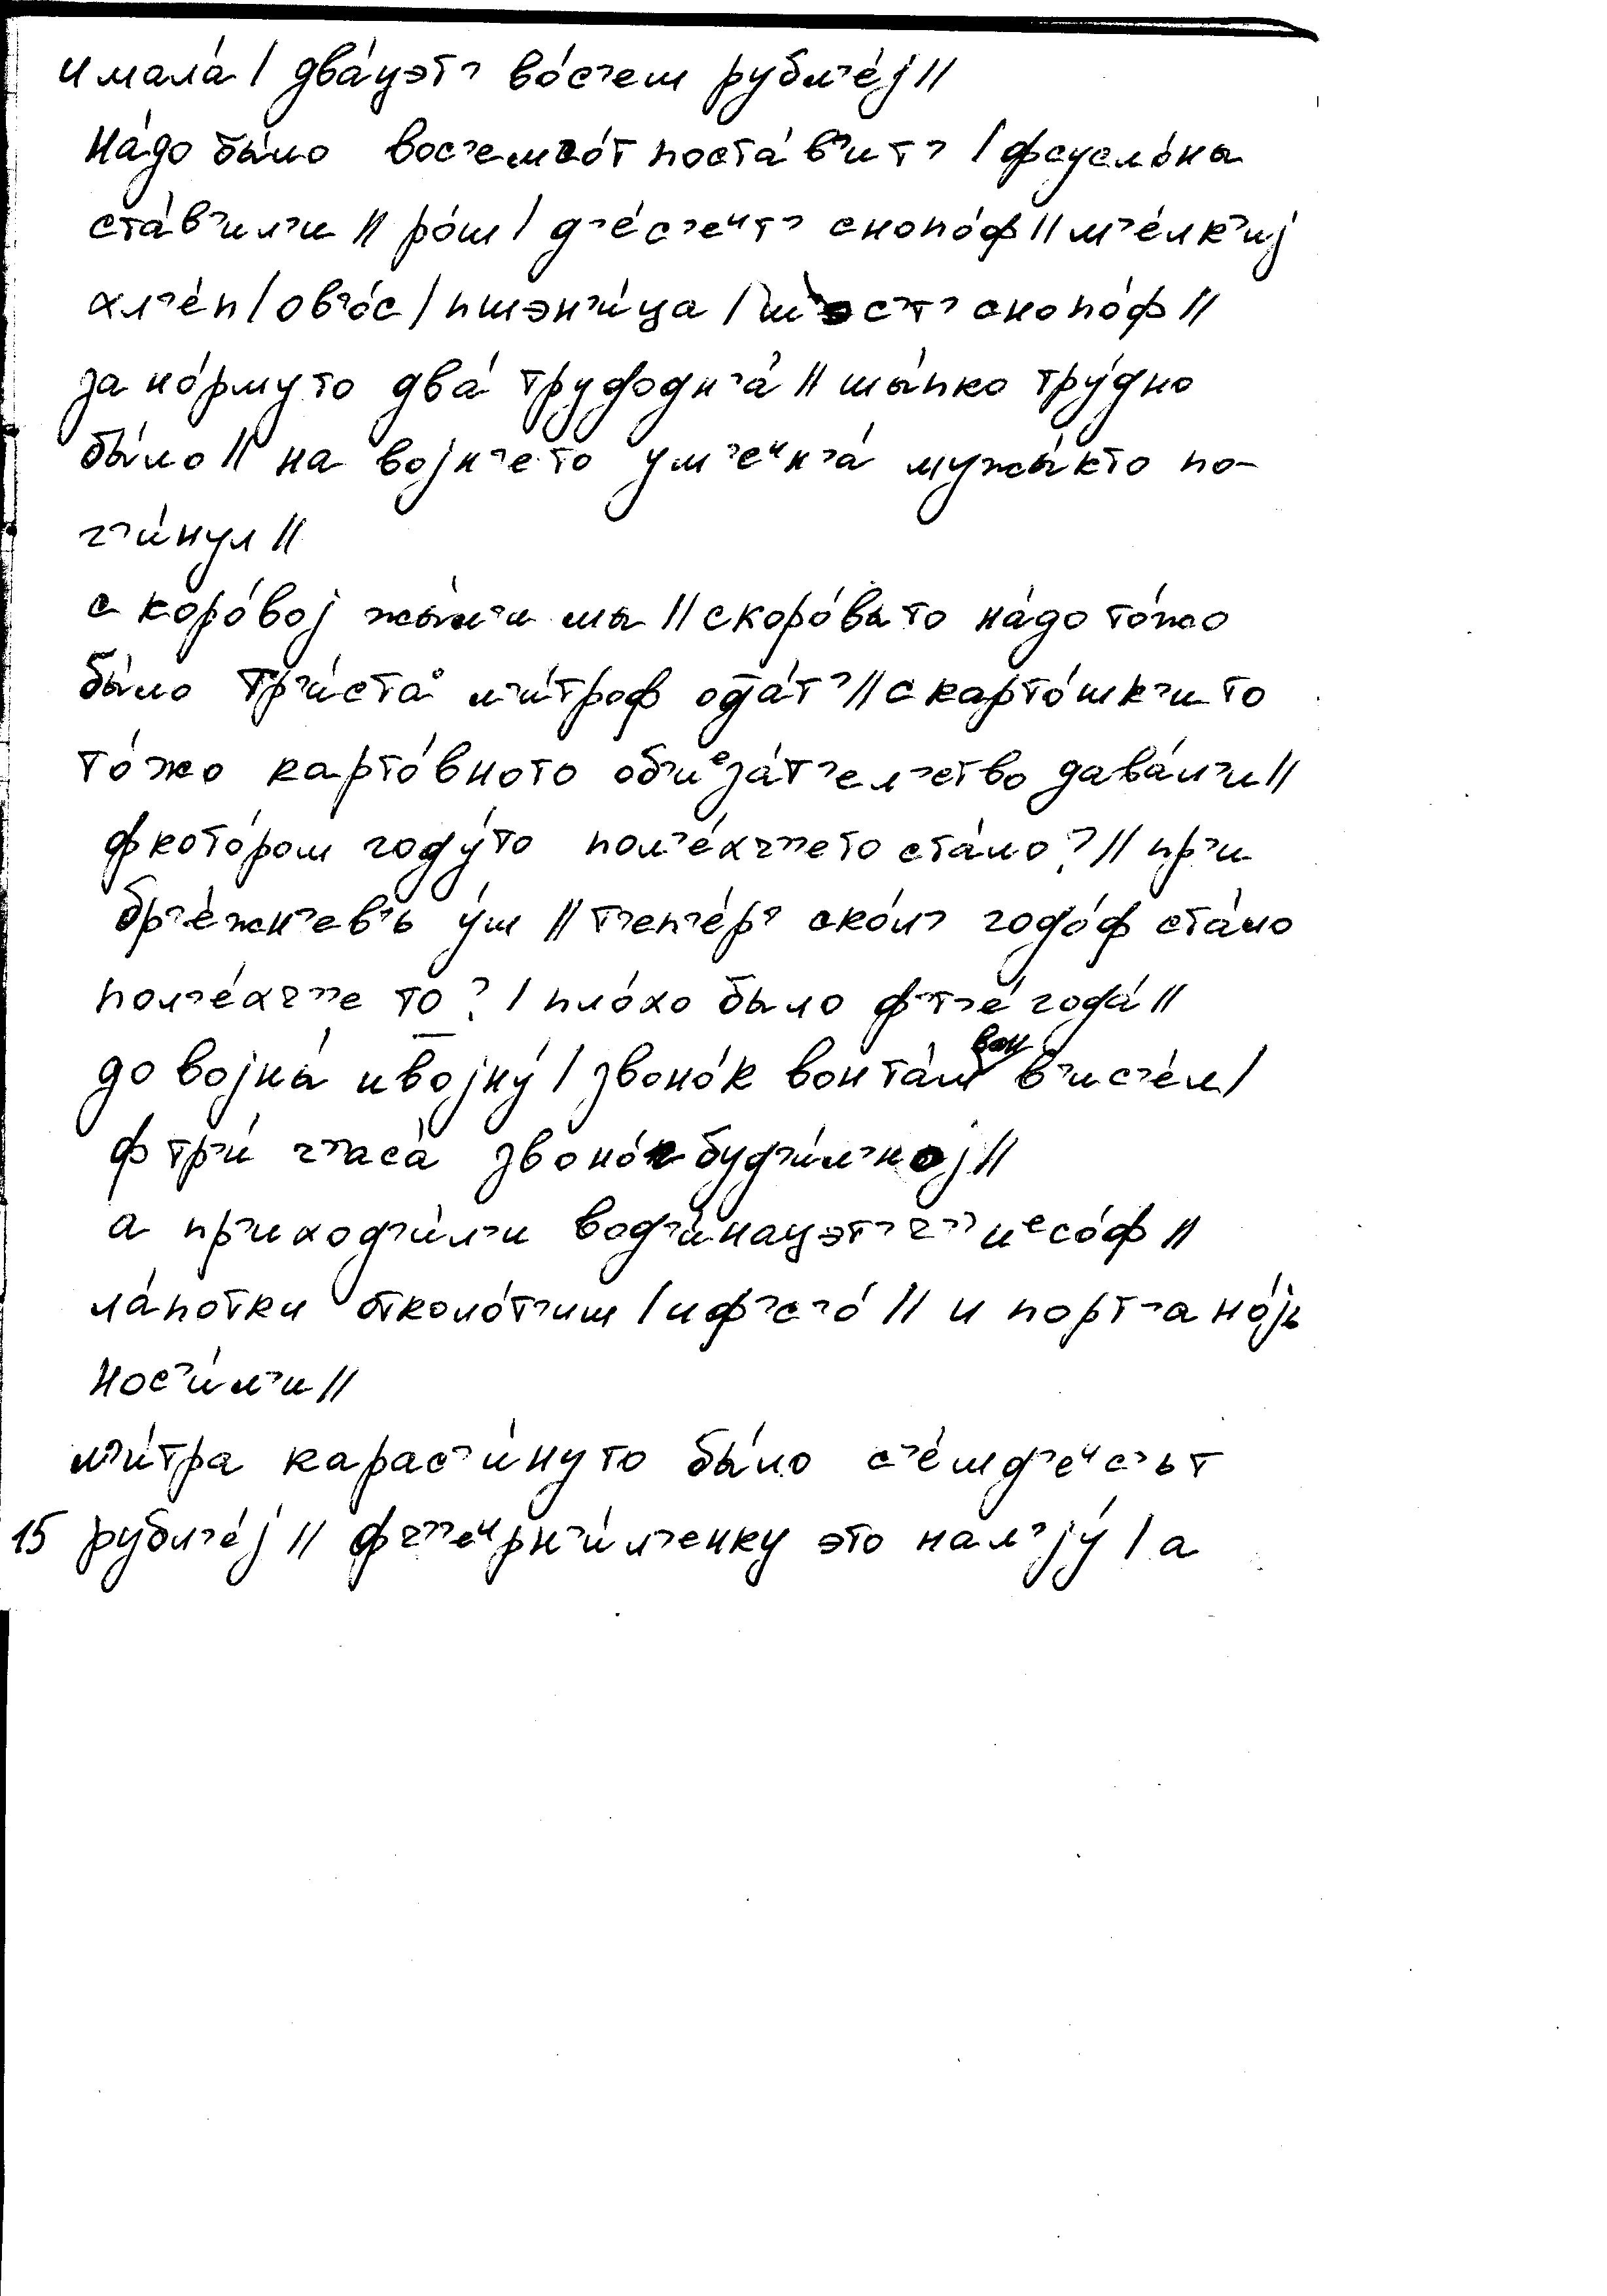 имала́ / два́цэт' во́с'ем рубл'е́j //
на́до бы́ло вос'емсо́т поста́в'ит' / фсусло́ны
ста́в'ил'и // ро́ш / д'е́с'еᶦт' снопо́ф // м'е́лк'иj
хл'е́п / ов'о́с / пшэн'и́ца / шэс'т' снопо́ф //
за но́рмуто два́ трудодн'а́ // шы́пко тру́дно
бы́ло // на воjн'е́то ум'еᶦн'а́ мужы́кто по-
г'и́нул //
с коро́воj жы́л'и мы // скоро́выто на́до то́жо
бы́ло тр'и́ста° л'и́троф од̅а́т' // с карто́шк'ито
то́жо карто́вного об'иᵉза́т'ел'ство дава́л'и //
ф кото́ром году́то пол'е́хч''ето ста́ло? // пр'и
бр'е́жн'ев'ь у́ш // т'еп'е́р' ско́л' годо́ф ста́ло
пол'е́хч''е то? / пло́хо было ф'т'е́ года́ //
до воjны́ ивоjну́ / звоно́к вонта́м вон в'ис'е́л /
ф тр'и́ ч''аса́ звоно́к буд'и́л'ноj //
а пр'иход'и́л'и вод'и́нацэт' ч''иᵉсо́ф //
ла́потки отколо́т'иш / иф'с'о́ // и порт'а но́jь
нос'и́л'и //
л'и́тра карас'и́нуто бы́ло с'е́мд'еᶦс'ьт
15 рубл'е́j // фч''еᶦрн'и́л'енку это нал'jу́ / а